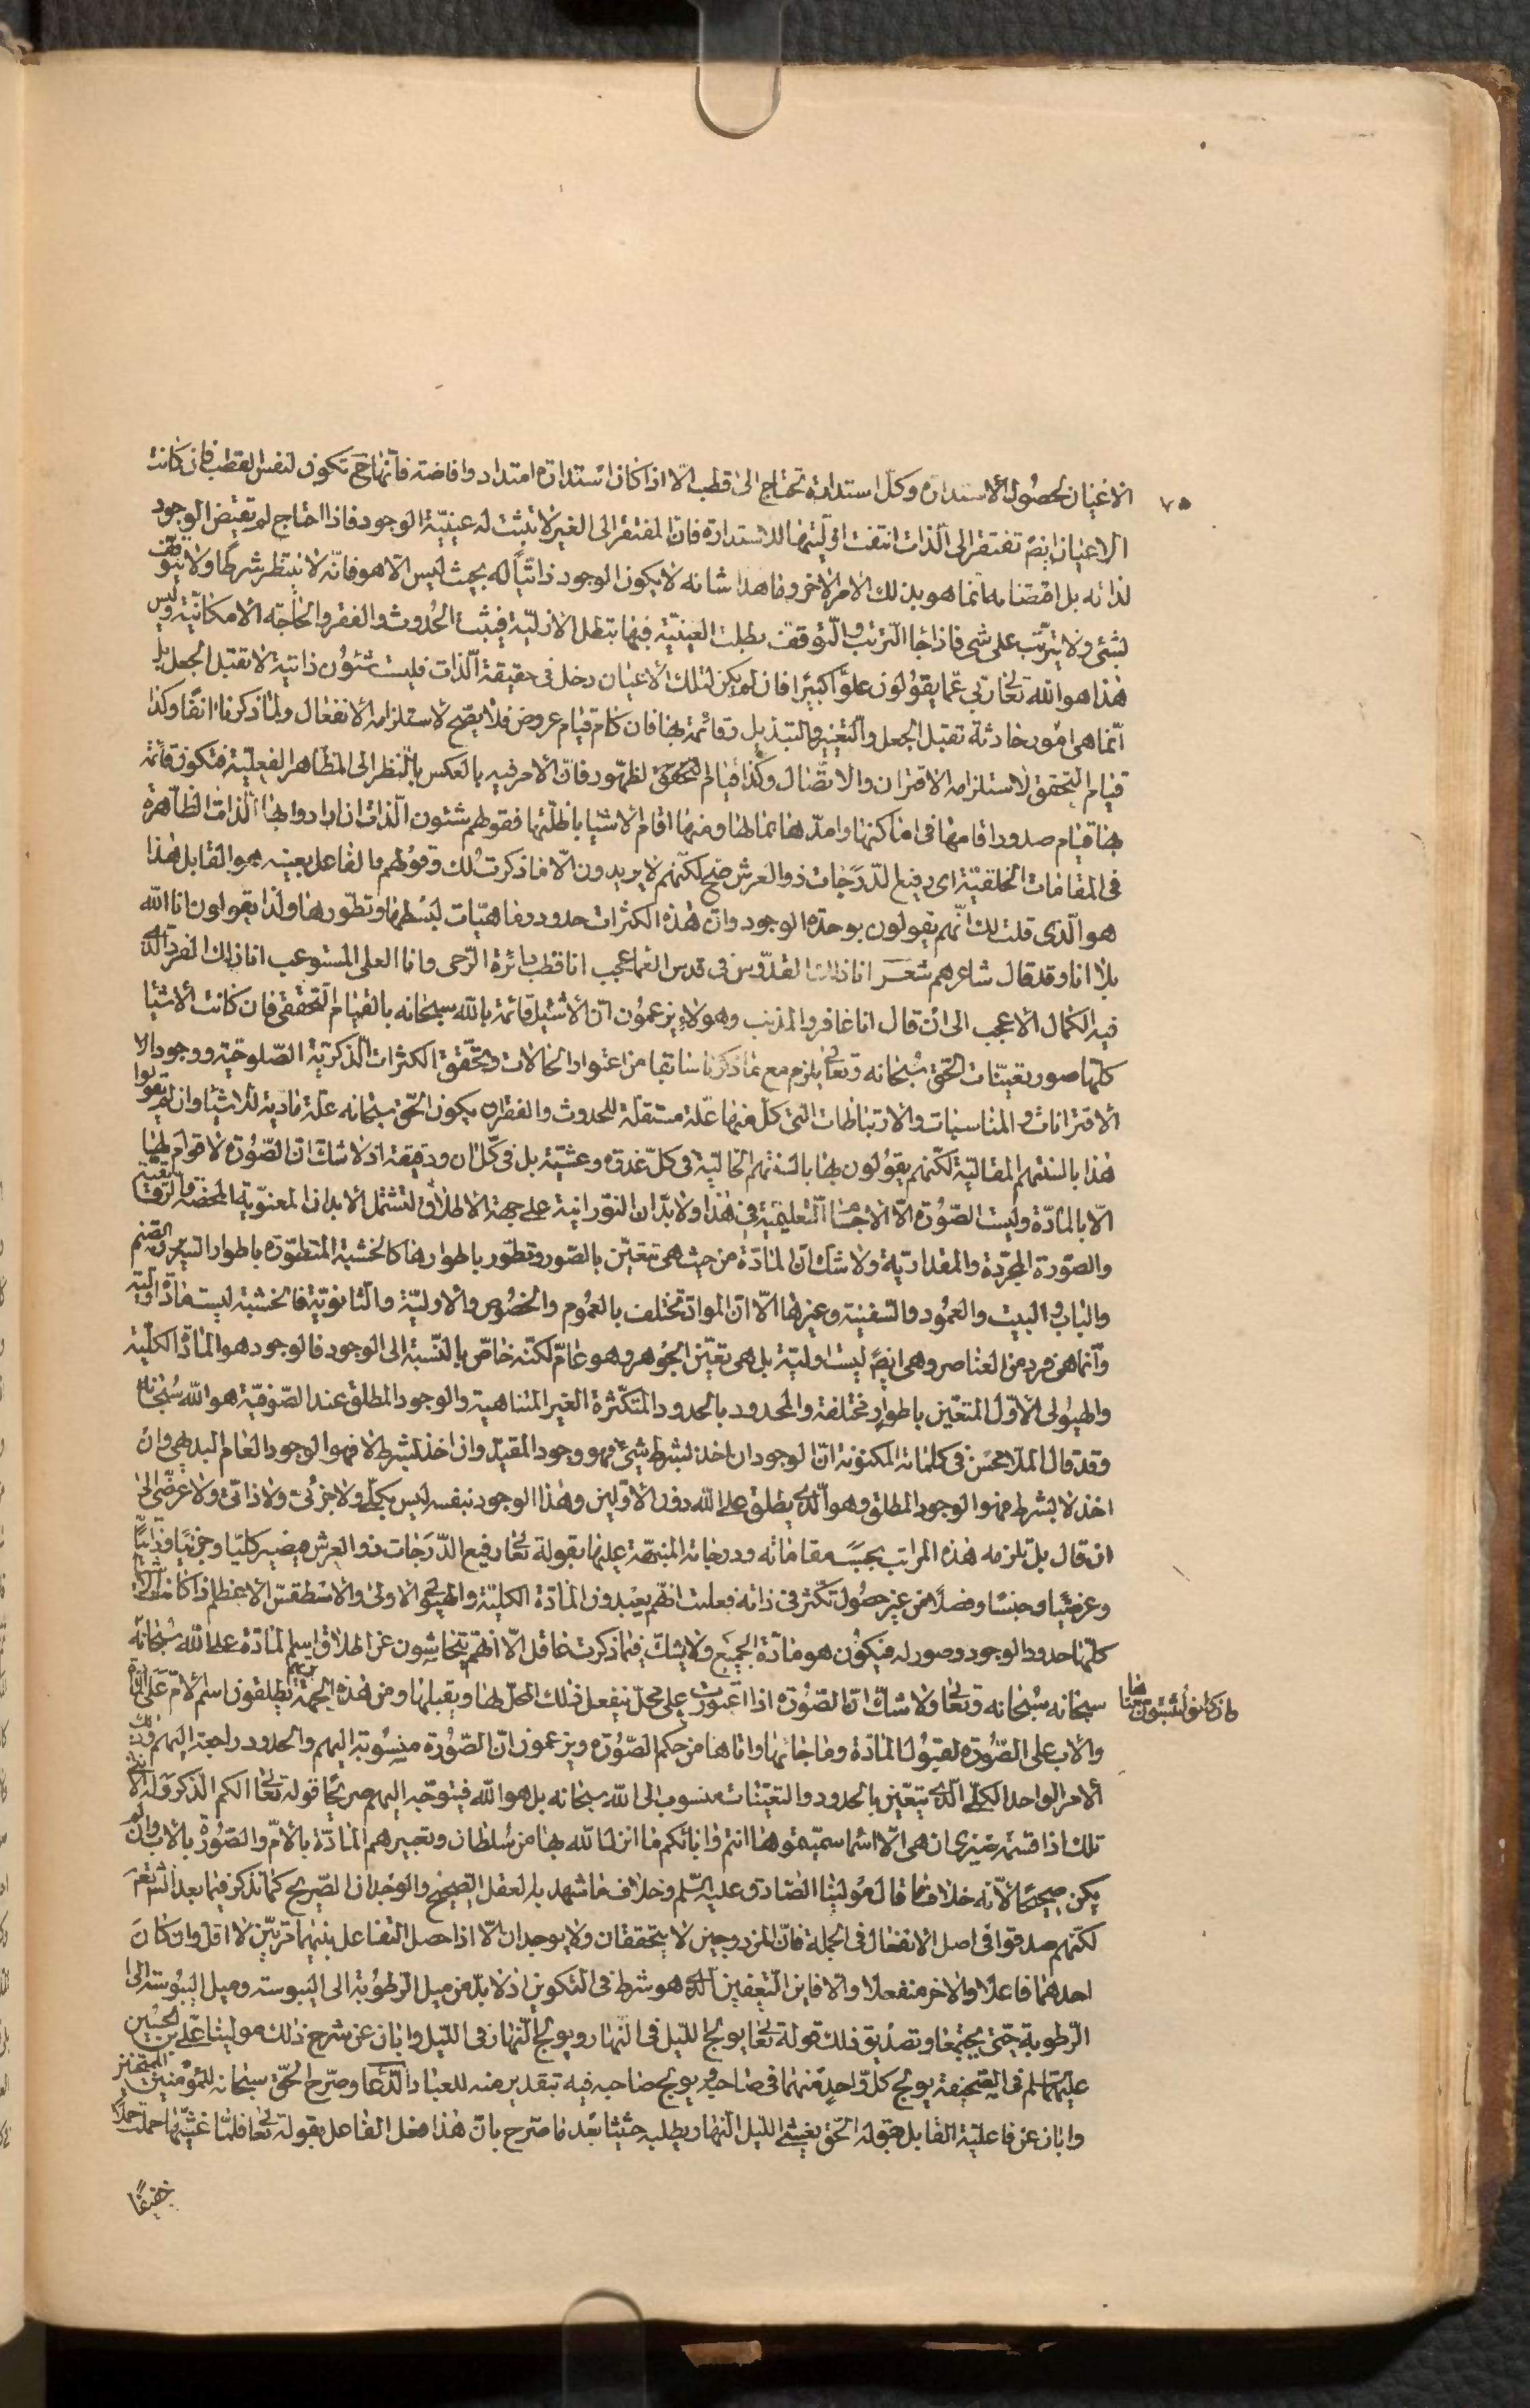 ٧٥
الاعيان لحصول الاستداره وكل استدارة تحتاج الى قطب الّا اذا كان استدارة امتداد وافاضة فانّها ح تكون لنفس القطب فان كانت
الاعيان ايضً تفتقر الى الذات انتفت اوليتها للاستدارة فانّ المفتقر الى الغير لا تثبت له عينيّة الوجود فاذا احتاج لم يقتض الوجود
لذاته بل اقتضاه انما هو بذلك الامر الاخر وما هذا شانه لا يكون الوجود ذاتيّاً له بحيث ليس الّا هو فانّه لا ينتظر شرطًا ولا يتوقف
لشئ ولا يترتّب على شئ فاذا جاء الترتب والتوقف بطلت العينيّة فبها تبطل الازليّة فيثبت الحُدوث والفقر والحاجة الامكانيّة وليس
هذا هو الله تعالى ربي عمّا يقولون علوًّا كبيرًا فان لم يكن لتلك الاعيان دخل في حقيقة الذات فليست شئون ذاتية لا تقبل الجعل بل
انّما هى امُور حادثة تقبل الجعل والتغيير والتبديل وقائمة بها فان كان قيام عروض فلا يصح لاستلزامه الانفعال ولما ذكرنا انفًا وكذا
قيام التحقق لاستلزامه الاقتران والاتصال وكذا قيام التحقق لظهور فانّ الامر فيه بالعكس بالنظر الى المظاهر الفعليّة فتكون قائمة
بها قيام صدور اقامها فى اماكنها وامدّها بما لها ومنها اقام الاشيا باظلّتها فقولهم شئون الذات ان ارادوا بها الذات الظاهرة
فى المقامات الخلقيّة اى رفيع الدّرجات ذو العرش صح لكنّهم لا يريدون الّا ما ذكرت لك وقولهم بالفاعل بعينه هو القابل هذا
هو الّذى قلت لك انّهم يقولون بوحدة الوجود وانّ هذه الكثرات حدود وماهيّات لبسطها وتطورها ولذا يقولون انا الله
بلا انا وقد قال شاعرهم شعر انا ذلك القدّوس فى قدس العماء محجب انا قطب دائرة الرّحى وانا العلى المستوعب انا ذلك الفرد الذى
فيه الكمال الاعجب الى ان قال انا غافر والمذنب وهولاء يزعمون انّ الاشيا قائمة بالله سبحانه بالقيام التحققى فان كانت الاشيا
كلها صور تعيّنات الحق سُبحانه وتعالى يلزم مع ما ذكرنا سابقا من اعتوار الحالات وتحقّق الكثرات الذكريّة الصّلوحيّة ووجود الا
الاقترانات والمناسبات والارتباطات التى كلّ منها علّة مستقلّة للحدوث والفقر ان يكون الحقّ سبحانه علّة ماديّة للاشيا وان لم يقولوا
هذا بالسنتهم المقاليّة لكنّهم يقولون بها بالسنتهم الحاليّة فى كلّ غدوة وعشيّة بل فى كلّ ان ودقيقة اذ لا شكّ انّ الصّورة لا قوام لها
الّا بالمادّة وليست الصّورة الّا الاجسام التعليميّة فى هذا ولا بدّ ان النورانية على جهة الاطلاق لتشمل الابدان المعنويّة المحضة والرقايقية
والصّورة المجرّدة والمقداريّة ولا شك انّ المادّة من حيث هى تتعيّن بالصّور وتطوّر باطوارها كالخشبة المتطوّرة باطوار السرير والصنم
والباب والبيت والعمود والسّفينة وغيرها الّا انّ الموادّ تختلف بالعموم والخصوص والاوليّة والثانويّة فالخشبة ليست مادّة اوليّة
وانّما هى فرد من العناصر وهى ايضً ليست اوليّة بل هى تعيّن الجوهر وهو عامّ لكنّه خاصّ بالنّسبة الى الوجود فالوجود هو المادّة الكليّة
والهيولى الاوّل المتعيّن باطوار مختلفة والمحدود بالحدود المتكثّرة الغير المتناهية والوجود المطلق عند الصّوفيّة هو الله سُبحانه
وقد قال الملا محسن فى كلماته المكنونة انّ الوجود ان اخذ بشرط شئ فهو وجود المقيّد وان اخذ بشرط لا فهو الوجود العام البديهى وان
اخذ لا بشرط فهو الوجود المطلق وهو الذى يطلق على الله دون الاوّلين وهذا الوجود بنفسه ليس بكلّى ولا جزئى ولا ذاتى ولا عرضّى الى
ان قال بل تلزمه هذه المراتب بحسب مقاماته ودرجاته المنبّهة عليها بقوله تعالى رفيع الدّرجات ذو العرش فيصير كليّا وجزئيّا وذاتيّا
وعرضيّا وجنسًا وفصلًا من غير حصُول تكثّر فى ذاته فعلمت انّهم يعبدون المادّة الكليّة والهيولى الاولى والاسطقس الاعظم اذ كانت الاشيا
كلّها حدود الوجود وصور له فيكون هو مادّة الجميع ولا يشكّ فيما ذكرت عاقل الّا انّهم يتحاشون عن اطلاق اسم المادّة على الله سُبحانه
سبحانه سُبحانه وتعالى ولا شكّ انّ الصّورة اذا اعتورت على محلّ ينفعل ذلك المحلّ لها ويقبلها ومن هذه الجهة تريهم يطلقون اسم الامّ على المادّة
والاب على الصّورة لقبول المادّة وما جائها واتاها من حكم الصّورة ويزعمون انّ الصّورة منسوبة اليهم والحدود راجعة اليهم وذلك
الامر الواحد الكلّى الذى يتعيّن بالحدود والتعيّنات منسوب الى الله سبحانه بل هو الله فيتوجّه اليهم صريحًا قوله تعالى الكم الذّكر وله الانثى
تلك اذا قسمة ضيزى ان هى الّا اسما سميتموها انتم وابائكم ما انزل الله بها من سُلطان وتعبيرهم المادّة بالامّ والصّورة بالاب وان لم
يكن صحيحًا لانّه خلاف ما قال مولينا الصّادق عليه السّلم وخلاف ما شهد به العقل الصحيح والوجدان الصّريح كما نذكر فيما بعد انش تعم
لكنّهم صدقوا فى اصل الانفعال فى الجملة فانّ المزدوجين لا يتحققان ولا يوجدان الّا اذا حصل التفاعل بينهما مرّتين لا اقل وان كان
احدهما فاعلا والاخر منفعلا والّا فاين التعفين الذى هو شرط فى التكوين اذ لا بدّ من ميل الرّطوبة الى اليبوسة وميل اليبُوسة الى
الرّطوبة حتّى يجتمعا وتصديق ذلك قوله تعالى يولج الليل فى النّهار ويولج النّهار فى الليل وابان عن شرح ذلك مولينا علىّ بن الحُسَين
عليهما السلم فى الصّحيفة يولج كلّ واحدٍ منهما فى صاحبه ويولج صاحبه فيه بتقدير منه للعباد الدّعا وصرّح الحقّ سبحانه للمؤمنين الممتحنين
وابان عن فاعليّة القابل بقوله الحق يغشى الليل النهار يطلبه حثيثا بعد ما صرّح بانّ هذا فعل الفاعل بقوله تعالى فلمّا تغشّيها حملت حملًا
خفيفًا